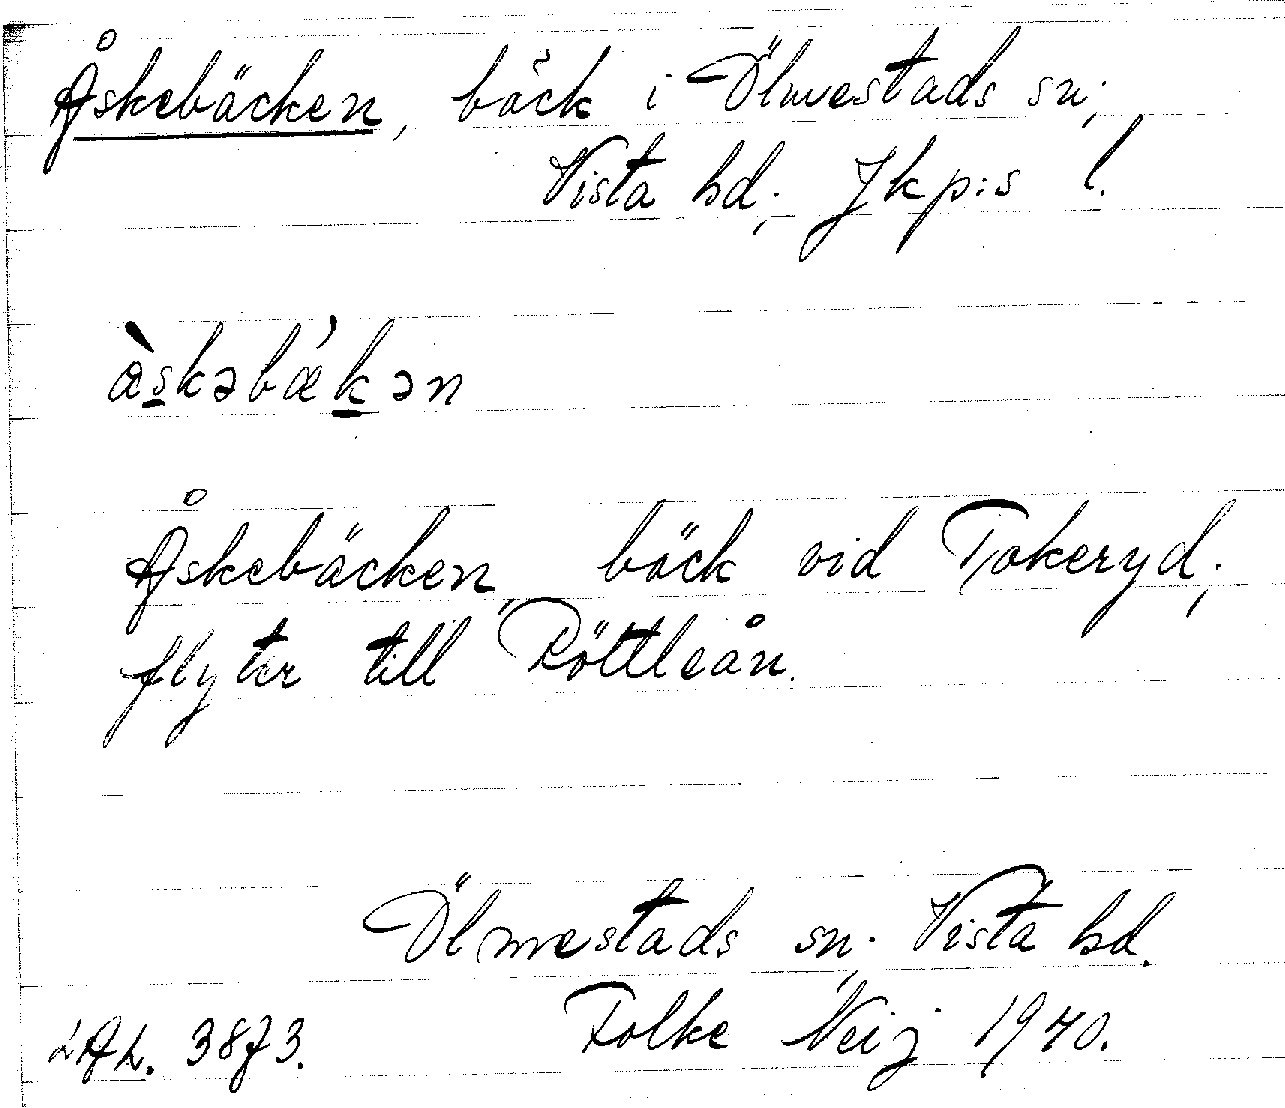 Åskebäcken, bäck i Ölmestads sn;
Vista hd; Jkp:s l.
àskəbǽkən
Åskebäcken, bäck vid Tokeryd;
flyter till Röttleån.
Ölmestads sn; Vista hd.
LAL. 3873. Folke Neij 1940.